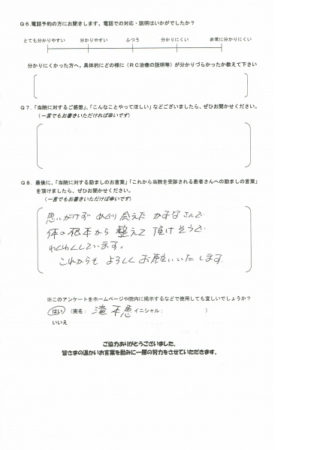 Q6.電話予約の方にお聞きします。電話での対応・説明はいかがでしたか？
とても分かりやすい 分かりやすい ふつう 分かりにくい 非常に分かりにくい
分かりにくかった方へ、具体的にどの様に（RC治療の説明等）が分かりづらかったか教えて下さい
Q7.「当院に対するご感想」、「こんなことやってほしい」などございましたら、ぜひお聞かせください。
（一言でもお書きいただければ幸いです）
Q8.最後に、「当院に対する励ましのお言葉」「これから当院を受診される患者さんへの励ましの言葉」
を頂けましたら、ぜひお聞かせください。
（一言でもお書きいただけば幸いです）
思いがけず めぐり会えた かずなさんで
体の根本から 整えて 頂けそうで
わくわくしています。
これからも よろしく お願いいたします
※このアンケートをホームページや院内に掲示するなどで使用しても宜しいでしょうか？
はい（実名： イニシャル： ）
いいえ
ご協力ありがとうございました。
皆さまの温かいお言葉を励みに一層の努力をさせていただきます。